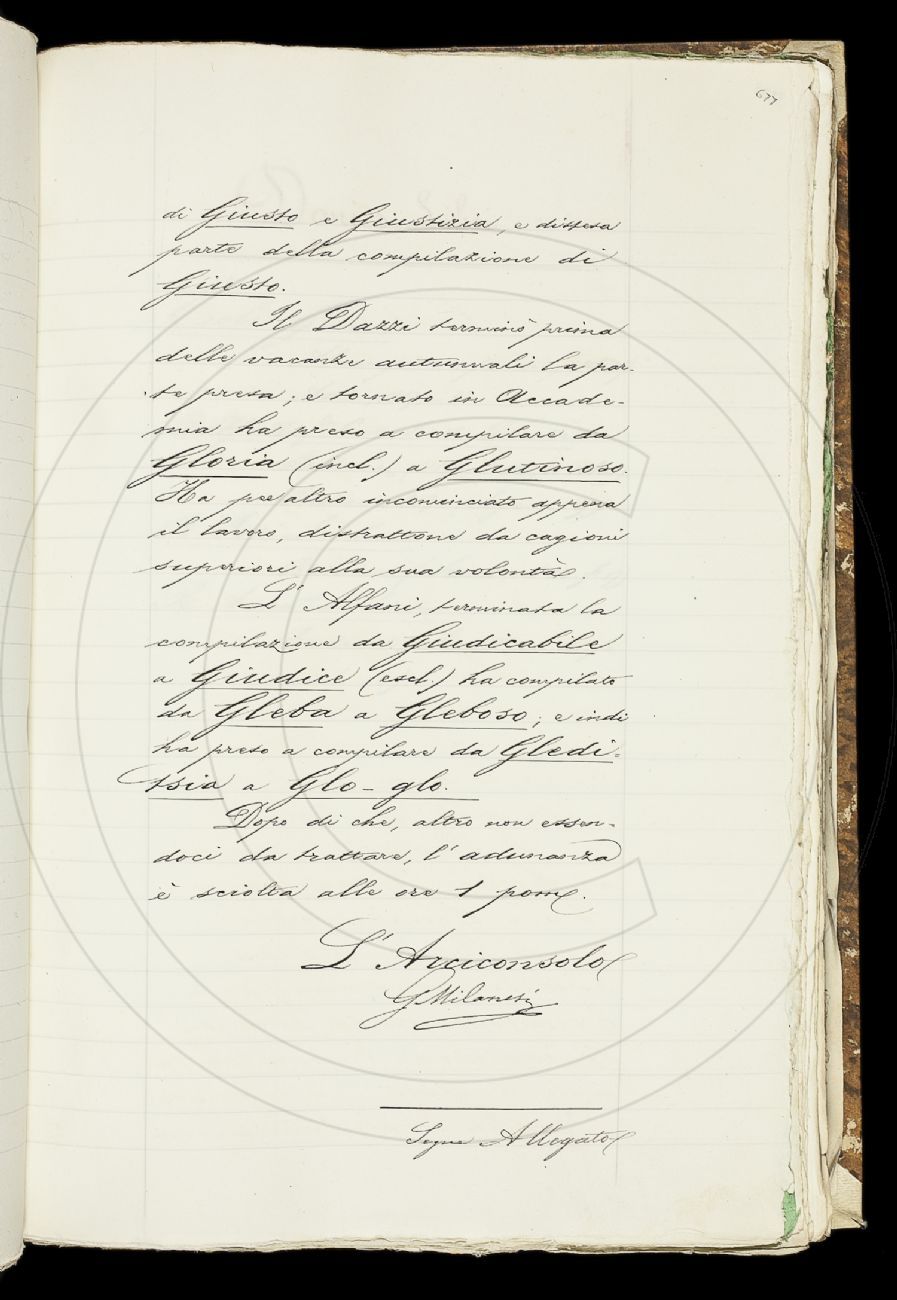 677
di Giusto e Giustizia, e distesa
parte della compilazione di
Giusto.
Il Dazzi terminò prima
delle vacanze autunnali la par-
te presa; e tornato in Accade-
mia ha preso a compilare da
Gloria (incl.) a Glutinoso.
Ha per altro incominciato appena
il lavoro, distrattone da cagioni
superiori alla sua volontà.
L' Alfani, terminata la
compilazione da Giudicabile
a Giudice (escl.) ha compilato
da Gleba a Gleboso; e indi
ha preso a compilare da Gledi-
tsia a Glo-glo.
Dopo di che, altro non essen-
doci da trattare, l' adunanza
è sciolta alle ore 1 pom.
L' Arciconsolo
G Milanesi
Segue Allegato